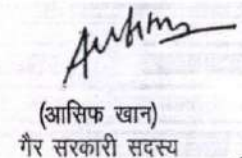 (आसिफ खान)
गैर सरकारी सदस्य